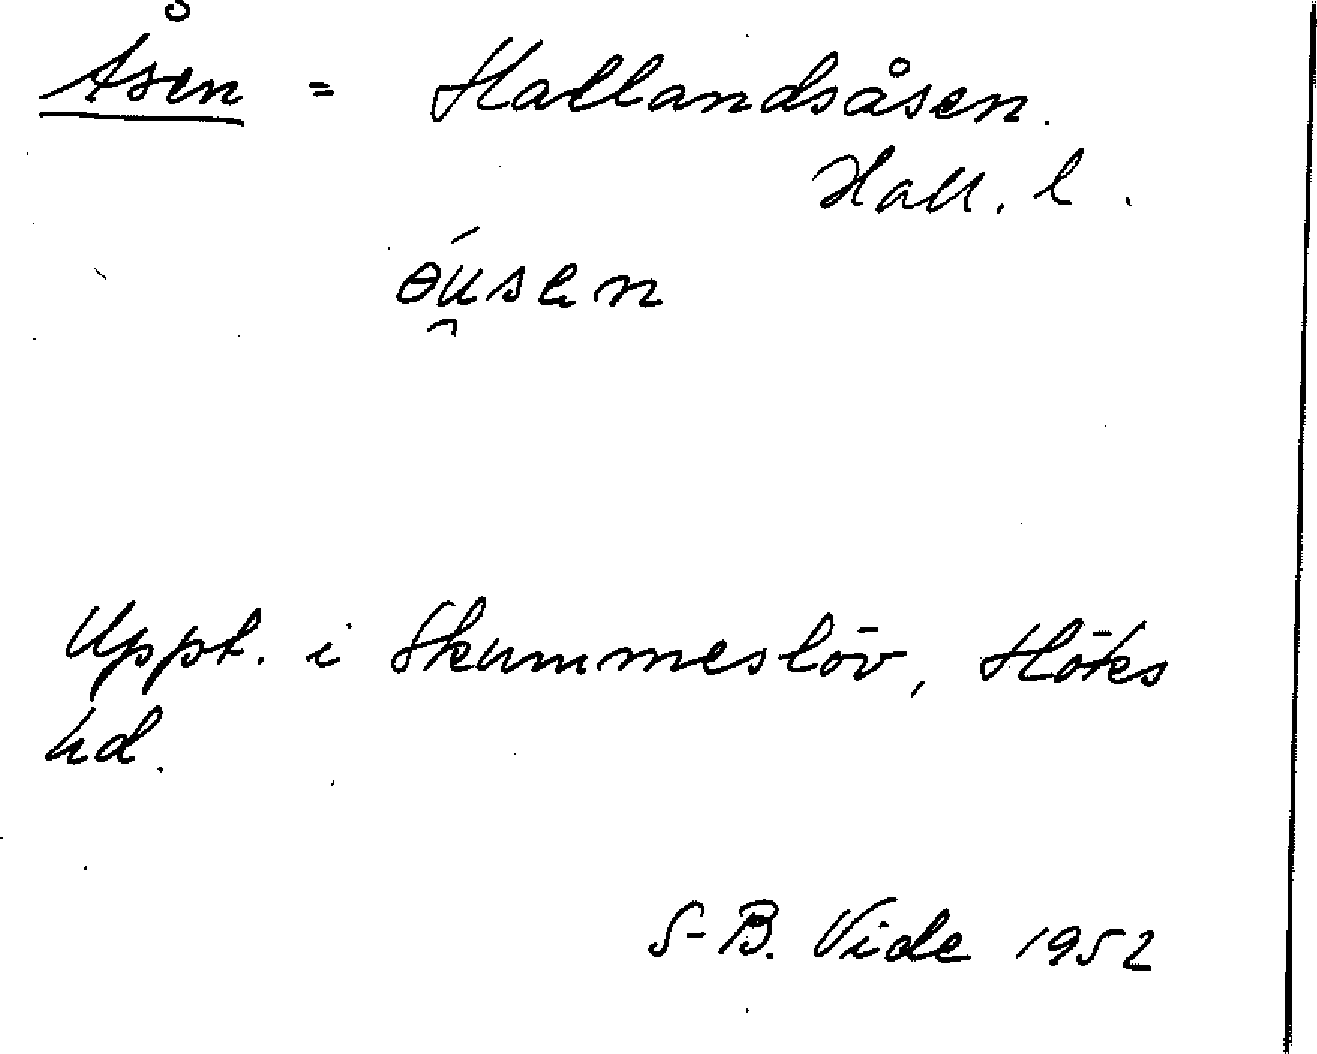 Åsen = Hallandsåsen.
Hall. l.
Uppt. i Skummeslöv, Höks
hd.
S-B. Vide 1952